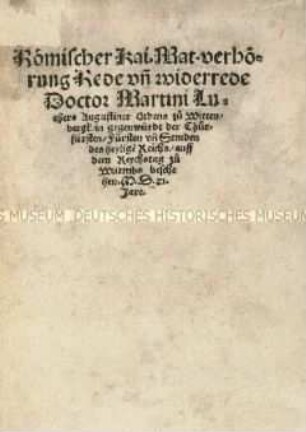 Römischer Kai. Mat. verhö-
rung Rede vñ widerrede
Doctor Martini Lu-
thers Augustiner Ordens zů Witten-
bergk in gegenwürde der Chůr
fürsten, Fürsten vñ Stenden
des heylige Reichs, auff
dem Reychstag zů
Wurmbs besche
hen. M. D. 21.
Jare.
MUSEUM DEUTSCHES HISTORISCHES MUSEUM